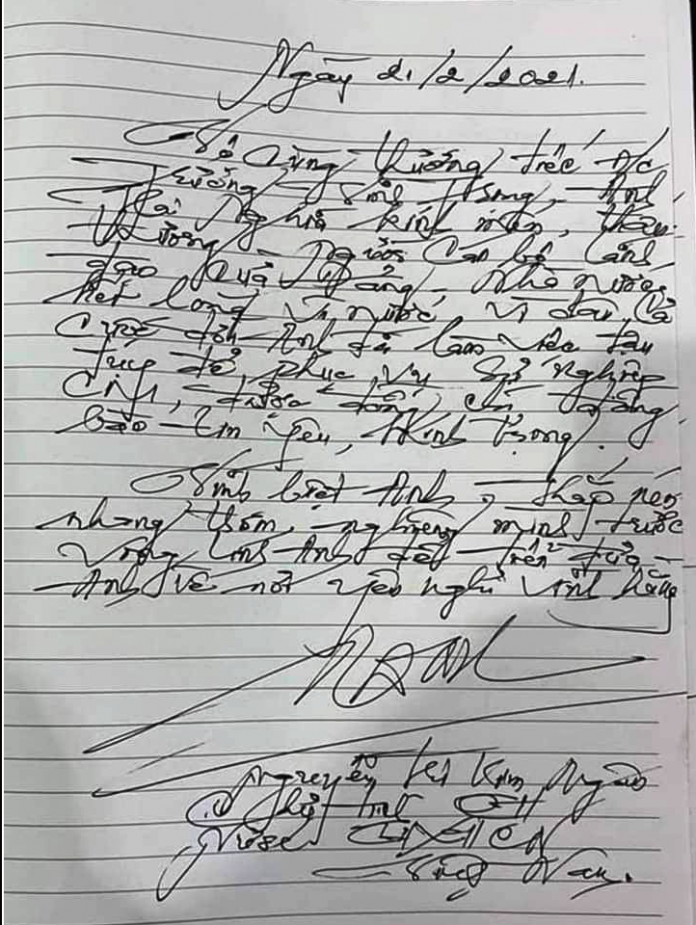 Ngày 21/2/2021.
Vô Cùng thương tiếc A/c
Trương Vĩnh Trọng, Anh
Hai Nghĩa kính mến, thân
thương. Người Cán bộ Lãnh
đạo Của Đảng, Nhà nước,
hết lòng vì nước, vì dân. Cả
Cuộc đời Anh đã làm việc tận
tụy để phục vụ Sự nghiệp
CM, được đồng chí đồng
bào tin yêu, kính trọng.
Vĩnh biệt Anh, thắp nén
nhang thơm, nghiêng mình trước
vong linh Anh để tiễn đưa
Anh về nơi yên nghỉ vĩnh hằng
Nguyễn Thị Kim Ngân
Chủ tịch QH
Nước CHXHCN
Việt Nam.